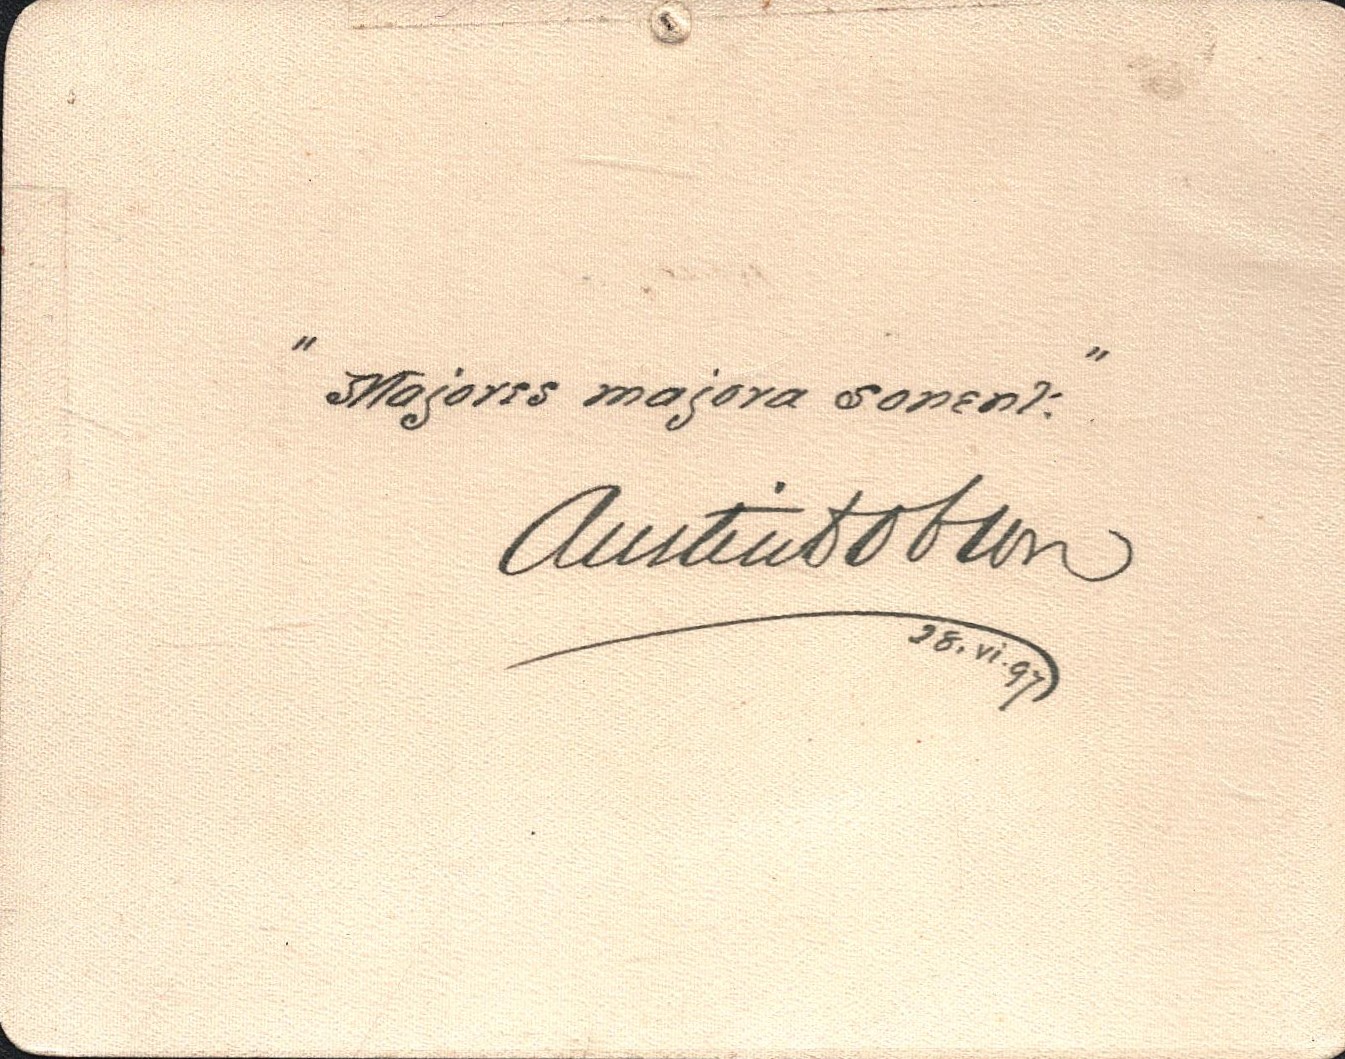 "Majores majora sonent:"
Austin Dobson
28.vi.97